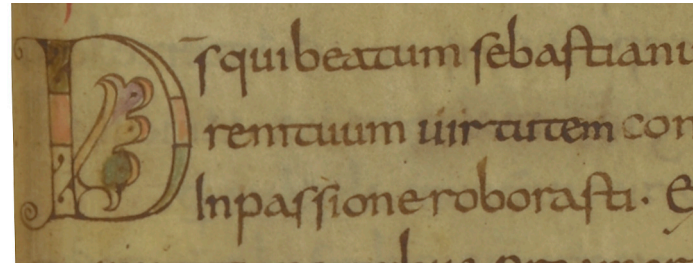 D̄squibeatum sebastianu
remtuum uirtutem con
Inpassioneroborasti. E